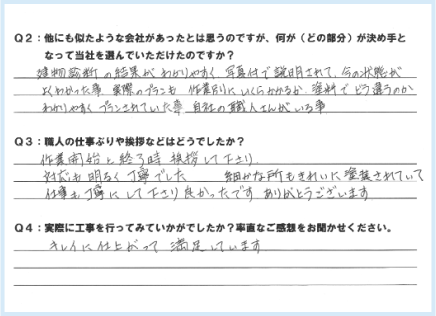 Q2：他にも似たような会社があったとは思うのですが、何が（どの部分）が決め手と
なって当社を選んでいただけたのですか？
建物診断の結果がわかりやすく 写真付で説明されて、今の状態が
よくわかった事 実際のプランも 作業別にいくらかかるか 塗料でどう違うのか
わかりやすくプランされていた事 自社の職人さんがいる事
Q3：職人の仕事ぶりや挨拶などはどうでしたか？
作業開始と終了時 挨拶して下さり
対応も明るく丁寧でした 細かな所もきれいに塗装されていて
仕事も丁寧にして下さり良かったです ありがとうございます
Q4：実際に工事を行ってみていかがでしたか？率直なご感想をお聞かせください。
キレイに仕上がって 満足しています